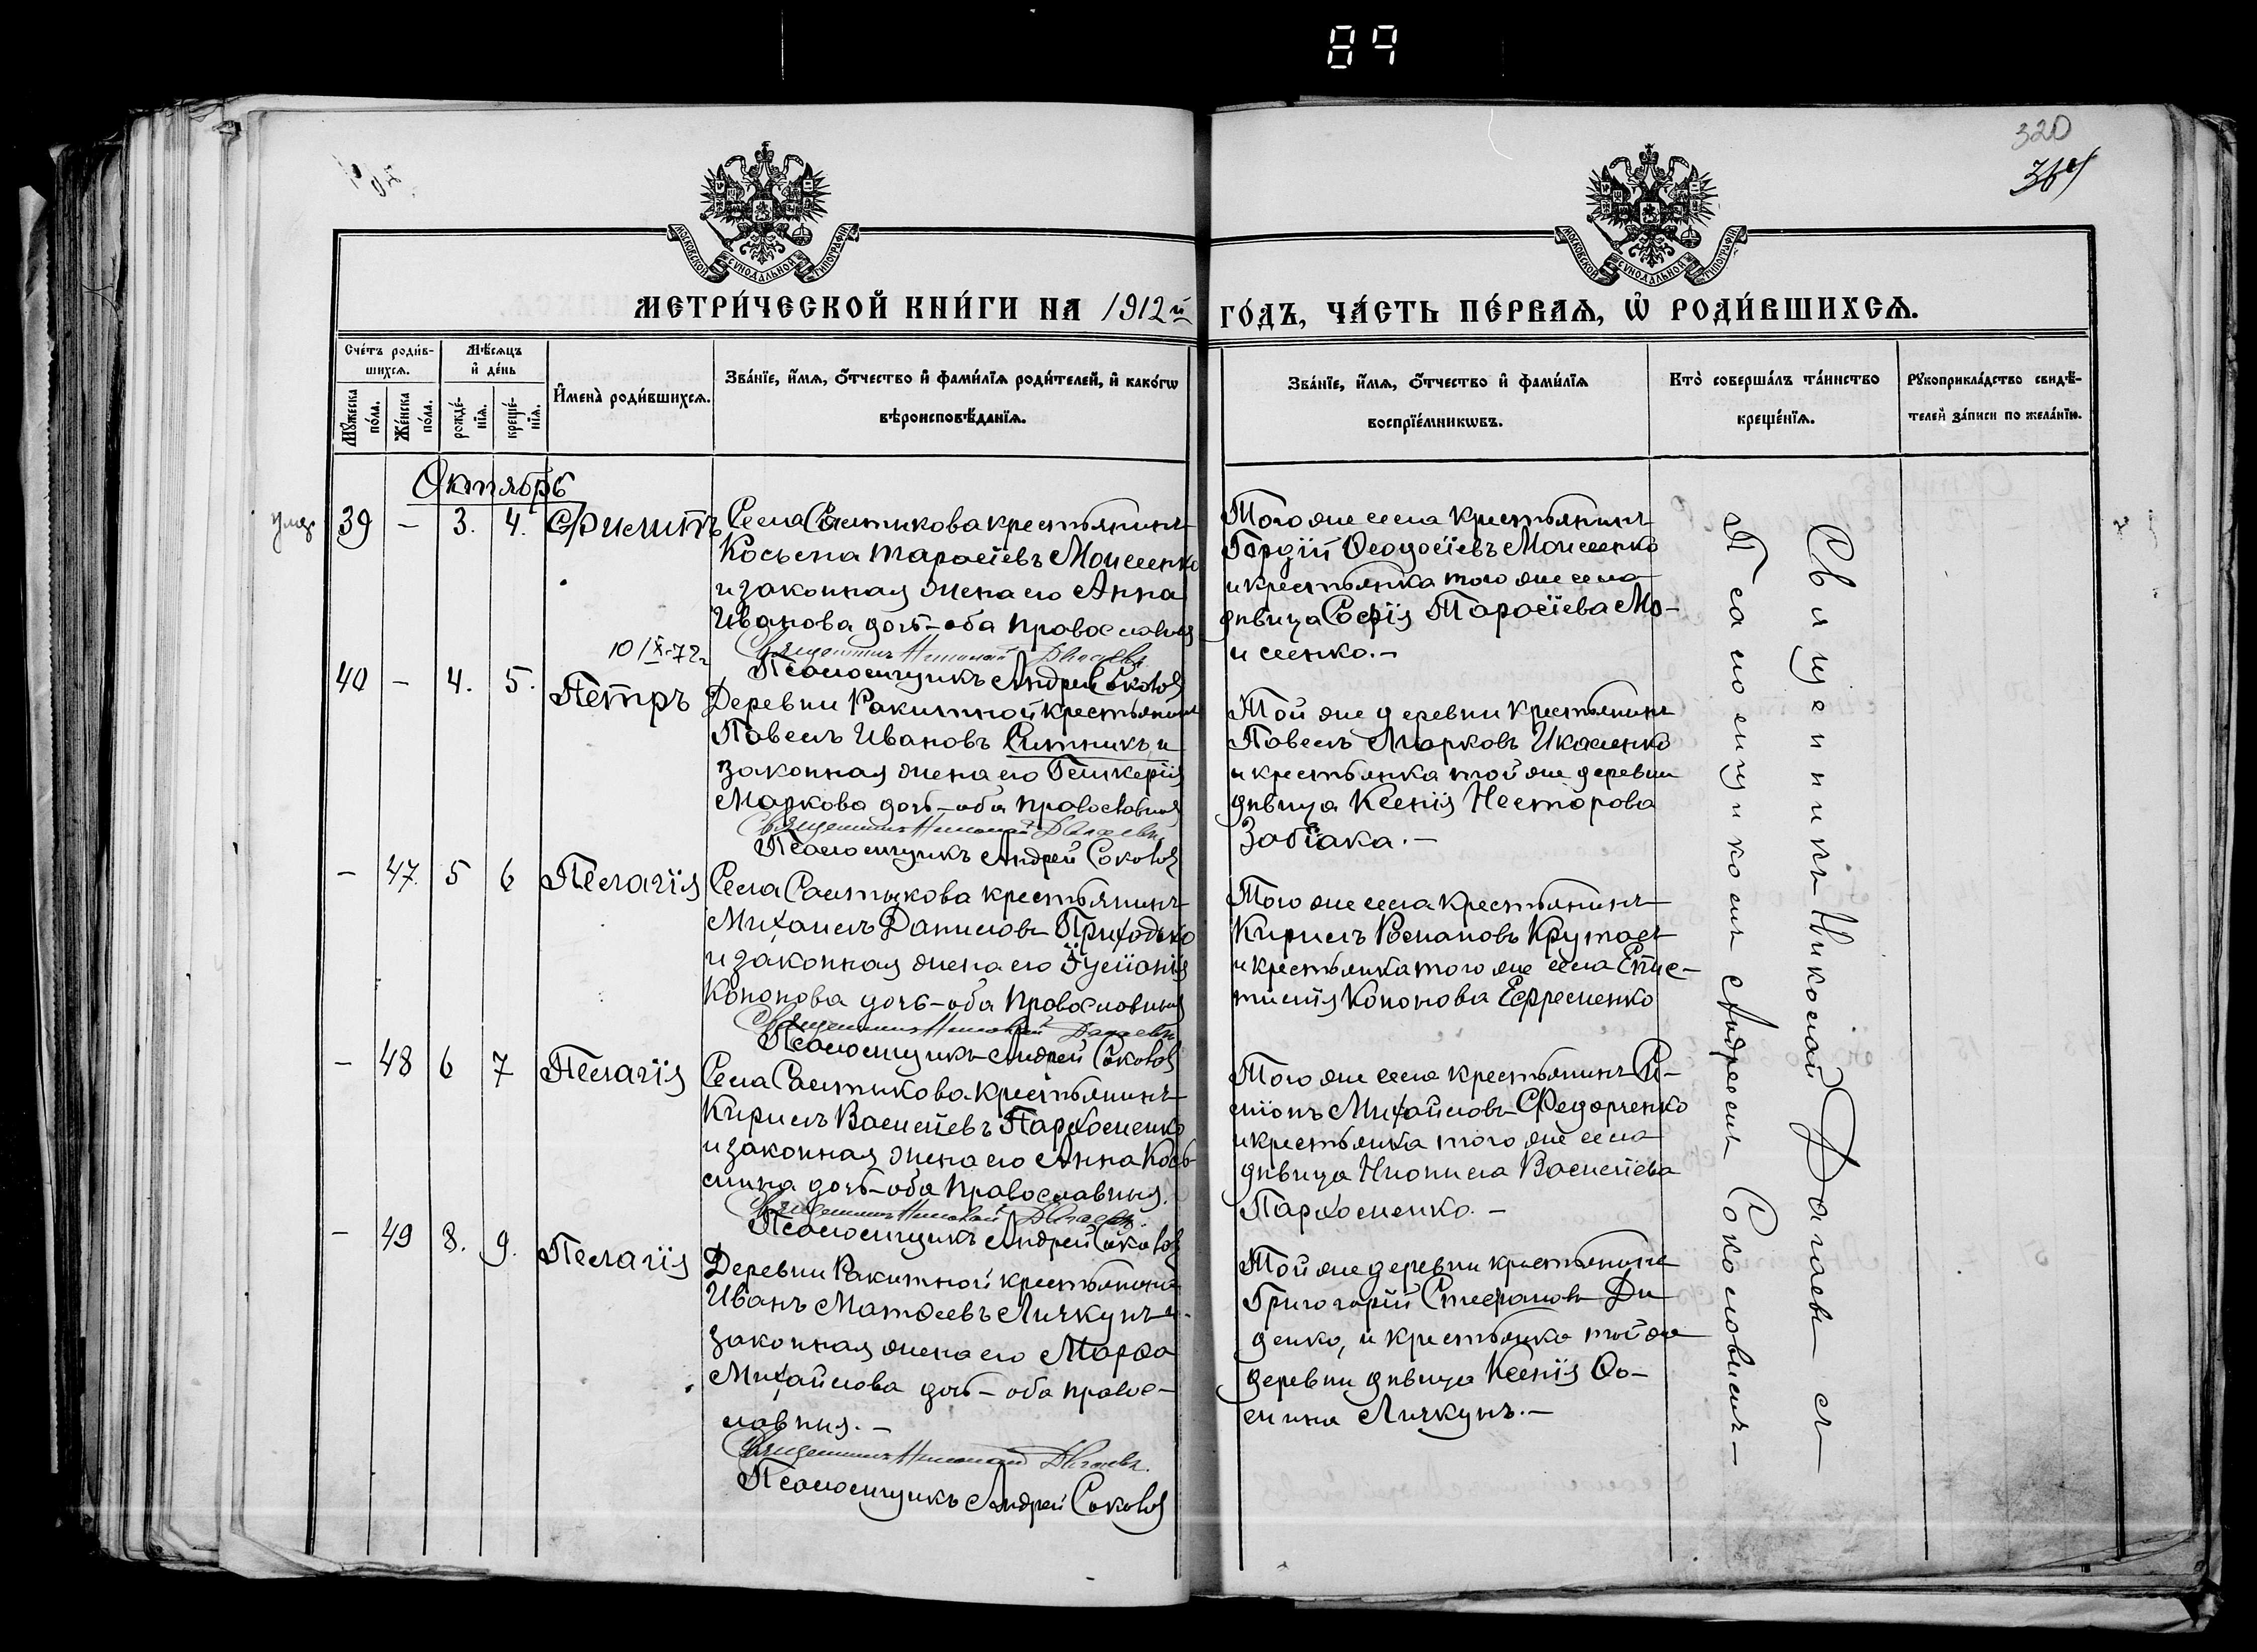 89
320
364
МОСКОВСКОЙ СѴНОДАЛЬНОЙ ТИПОГРАФІИ
МОСКОВСКОЙ СѴНОДАЛЬНОЙ ТИПОГРАФІИ
МЕТРИ́ЧЕСКОЙ КНИ́ГИ НА 1912й
ГО́ДЪ, ЧА́СТЬ ПЕ́РВАѦ, Ѡ РОДИ́ВШИХСѦ.
Сче́тъ роди́в-
шихсѧ.
Мꙋ́жеска по́ла.
Же́нска по́ла.
Мѣ́сѧцъ и де́нь
рожде́-нїѧ.
креще́-нїѧ.
И҆мена̀ роди́вшихсѧ.
Зва́нїе, и҆́мѧ, ѻ҆́тчество и҆ фами́лїѧ роди́телей, и҆ како́гѡ
вѣроисповѣ́данїѧ.
Зва́нїе, и҆́мѧ, ѻ҆́тчество и҆ фами́лїѧ
воспрїе́мникѡвъ.
Кто̀ соверша́лъ та́инство
креще́нїѧ.
Рꙋкоприкла́дство свидѣ́-
телей за́писи по жела́нїю.
Октябрь
39 – 3. 4. Филиппъ
Села Салтикова крестьянинъ
Косьма Тарасіевъ Моисеенко
и законная жена его Анна
Иванова дочь – оба православныя
Священникъ Николай
Псаломщикъ Андрей Соколов
Того же села крестьянинъ
Гордій Ѳеодосіевъ Моисеенко
и крестьянка того же села
дѣвица Софія Тарасіева Мо-
исеенко. –
10/IX-72г
40 – 4. 5. Петръ
Деревни Ракитной крестьянинъ
Павелъ Ивановъ Ситникъ и
законная жена его Гликерія
Маркова дочь – оба православныя
Священникъ Николай
Псаломщикъ Андрей Соколов
Той же деревни крестьянинъ
Павелъ Марковъ Икаленко
и крестьянка той же деревни
дѣвица Ксенія Несторова
Забіака. –
– 47. 5 6 Пелагія
Села Салтыкова крестьянинъ
Михаилъ Даниловъ Приходько
и законная жена его
Кононова дочь – оба православныя
Священникъ Николай
Псаломщикъ Андрей Соколов
Того же села крестьянинъ
Кирилъ Романовъ Крутась
и крестьянка того же села Епис-
тимія Кононова Ефременко
– 48 6 7 Пелагія
Села Салтикова крестьянинъ
Кирилъ Василіевъ Пархоменко
и законная жена его Анна Кось-
мина дочь – оба православныя.
Священникъ Николай
Псаломщикъ Андрей Соколов
Того же села крестьянинъ Си-
міонъ Михайловъ Федорченко
и крестьянка того же села
дѣвица Неонила Василіева
Пархоменко. –
– 49 8. 9. Пелагія
Деревни Ракитной крестьянинъ
Иванъ Матѳеевъ Личкунъ и
законная жена его Марѳа
Михайлова дочь – оба правос-
лавныя. –
Священникъ Николай
Псаломщикъ Андрей Соколов
Той же деревни крестьянинъ
Григорій Стефановъ Ди
денко, и крестьянка той же
деревни дѣвица Ксенія Ѳо-
мина Личкунъ. –
Священникъ Николай
Псаломщикомъ Андреемъ Соколовымъ –